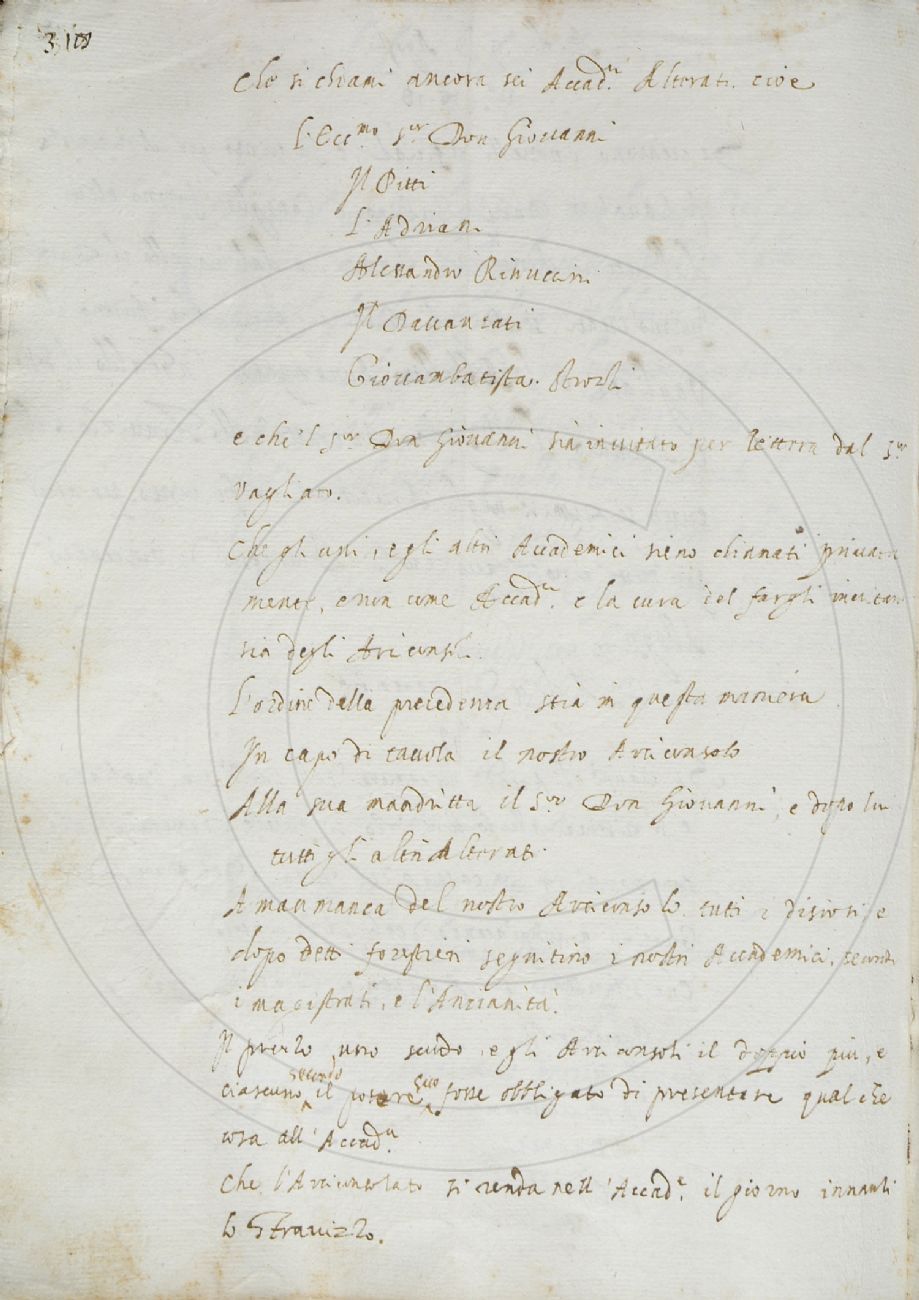 3 108
Che si chiami ancora sei Accad.ci Alterati cioè
L'Ecc.mo S.or Don Giovanni
Il Pitti
L'Adriani
Alessandro Rinuccini
Il Davanzati
Giovambatista Strozzi
e che 'l S.or Don Giovanni sia invitato per lettera dal S.or
Vagliato.
Che gli usi, e gli altri Accademici sieno chiamati privata
mente, e non come Accad.ci e la cura del fargli invitare
sia degli Arciconsoli
L'ordine della precedenza stia in questa maniera
In capo di tavola il nostro Arciconsolo
Alla sua mandritta il S.or Don Giovanni, e dopo lui
tutti gli altri Alterati
A man manca del nostro Arciconsolo tutti i e
dopo detti forestieri seguitino i nostri Accademici, secondo
i magistrati, e l'Anzianità.
Il prezzo uno scudo, e gli Arciconsoli il doppio più, e
ciascuno secondo il potere suo fosse obbligato di presentare qualche
cosa all'Accad.a
Che l'Arciconsolato si renda nell'Accad.a il giorno innanzi
lo Stravizzo.